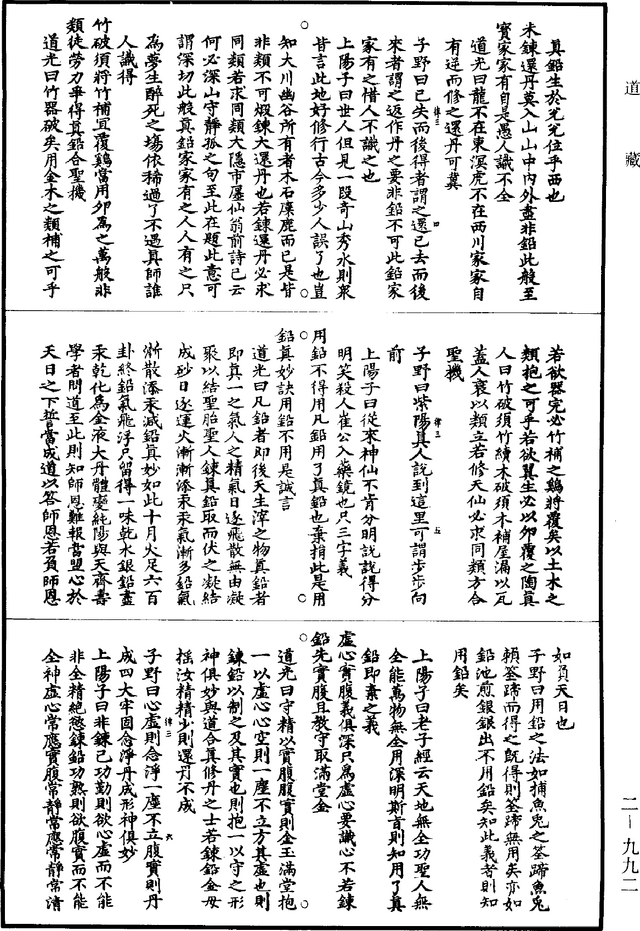 道藏
真鉛生於兊兊位乎西也
未鍊還丹莫入山山中內外盡非鉛此般至
寶家家有自是愚人識不全
道光曰龍不在東溟虎不在西川家家自
有逆而修之還丹可冀
子野曰已失而後得者謂之還已去而後
來者謂之返作丹之要非鉛不可此鉛家
家有之惜人不識之也
上陽子曰世人但見一段奇山秀水則衆
皆言此地好修行古今多少人誤了也豈
知大川幽谷所有者木石麋鹿而已是皆
非類不可煅鍊大還丹也若鍊還丹必求
同類若求同類大隱市廛仙翁前詩已云
何必深山守靜孤之句至此在題此意可
謂深切此般真鉛家家有之人人有之只
為夢生醉死之場依稀過了不遇真師誰
人識得
竹破須將竹補宜覆鷄當用卵為之萬般非
類徒勞力爭得真鉛合聖機
道光曰竹器破矣用金木之類補之可乎
若欲器完必竹補之鷄將覆矣以土木之
類抱之可乎若欲翼生必以卵覆之陶真
人曰竹破須竹續木破須木補屋漏以瓦
蓋人衰以類立若修天仙必求同類方合
聖機
子野曰紫陽真人說到這里可謂步步向
前
上陽子曰從來神仙不肯分明說說得分
明笑殺人崔公入藥鏡也只三字義
用鉛不得用凡鉛用了真鉛也棄捐此是用
鉛真妙訣用鉛不用是誠言
道光曰凡鉛者即後天生滓之物真鉛者
即真一之氣人之精氣日逐飛散無由凝
聚以結聖胎聖人鍊真鉛取而伏之凝結
成砂日逐運火漸漸添汞汞氣漸多鉛氣
漸散添汞減鉛真妙如此十月火足六百
卦終鉛氣飛浮只留得一味乾水銀鉛盡
汞乾化為金液大丹體變純陽與天齊壽
學者問道至此則知師恩難報當盟心於
天日之下誓當成道以答師恩若負師恩
如負天日也
子野曰用鉛之法如捕魚兎之筌蹄魚兎
賴筌蹄而得之旣得則筌蹄無用矣亦如
鉛池煎銀銀出不用鉛矣知此義者則知
用鉛矣
上陽子曰老子經云天地無全功聖人無
全能萬物無全用深明斯旨則知用了真
鉛即棄之義
虛心實腹義俱深只為虛心要識心不若鍊
鉛先實腹且教守取滿堂金
道光曰守精以實腹腹實則金玉滿堂抱
一以虛心心空則一塵不立方其虛也則
鍊鉛以制之及其實也則抱一以守之形
神俱妙與道合真修丹之士若鍊鉛全母
搖汝精精少則還丹不成
子野曰心虛則念淨一塵不立腹實則丹
成四大牢固念淨丹成形神俱妙
上陽子曰非鍊己功勤則欲心虛而不能
非全精絕慾鍊鉛功熟則欲腹實而不能
全神虛心常應實腹常靜常應常靜常清
律三 四
律三 五
律三 六
二－九九二